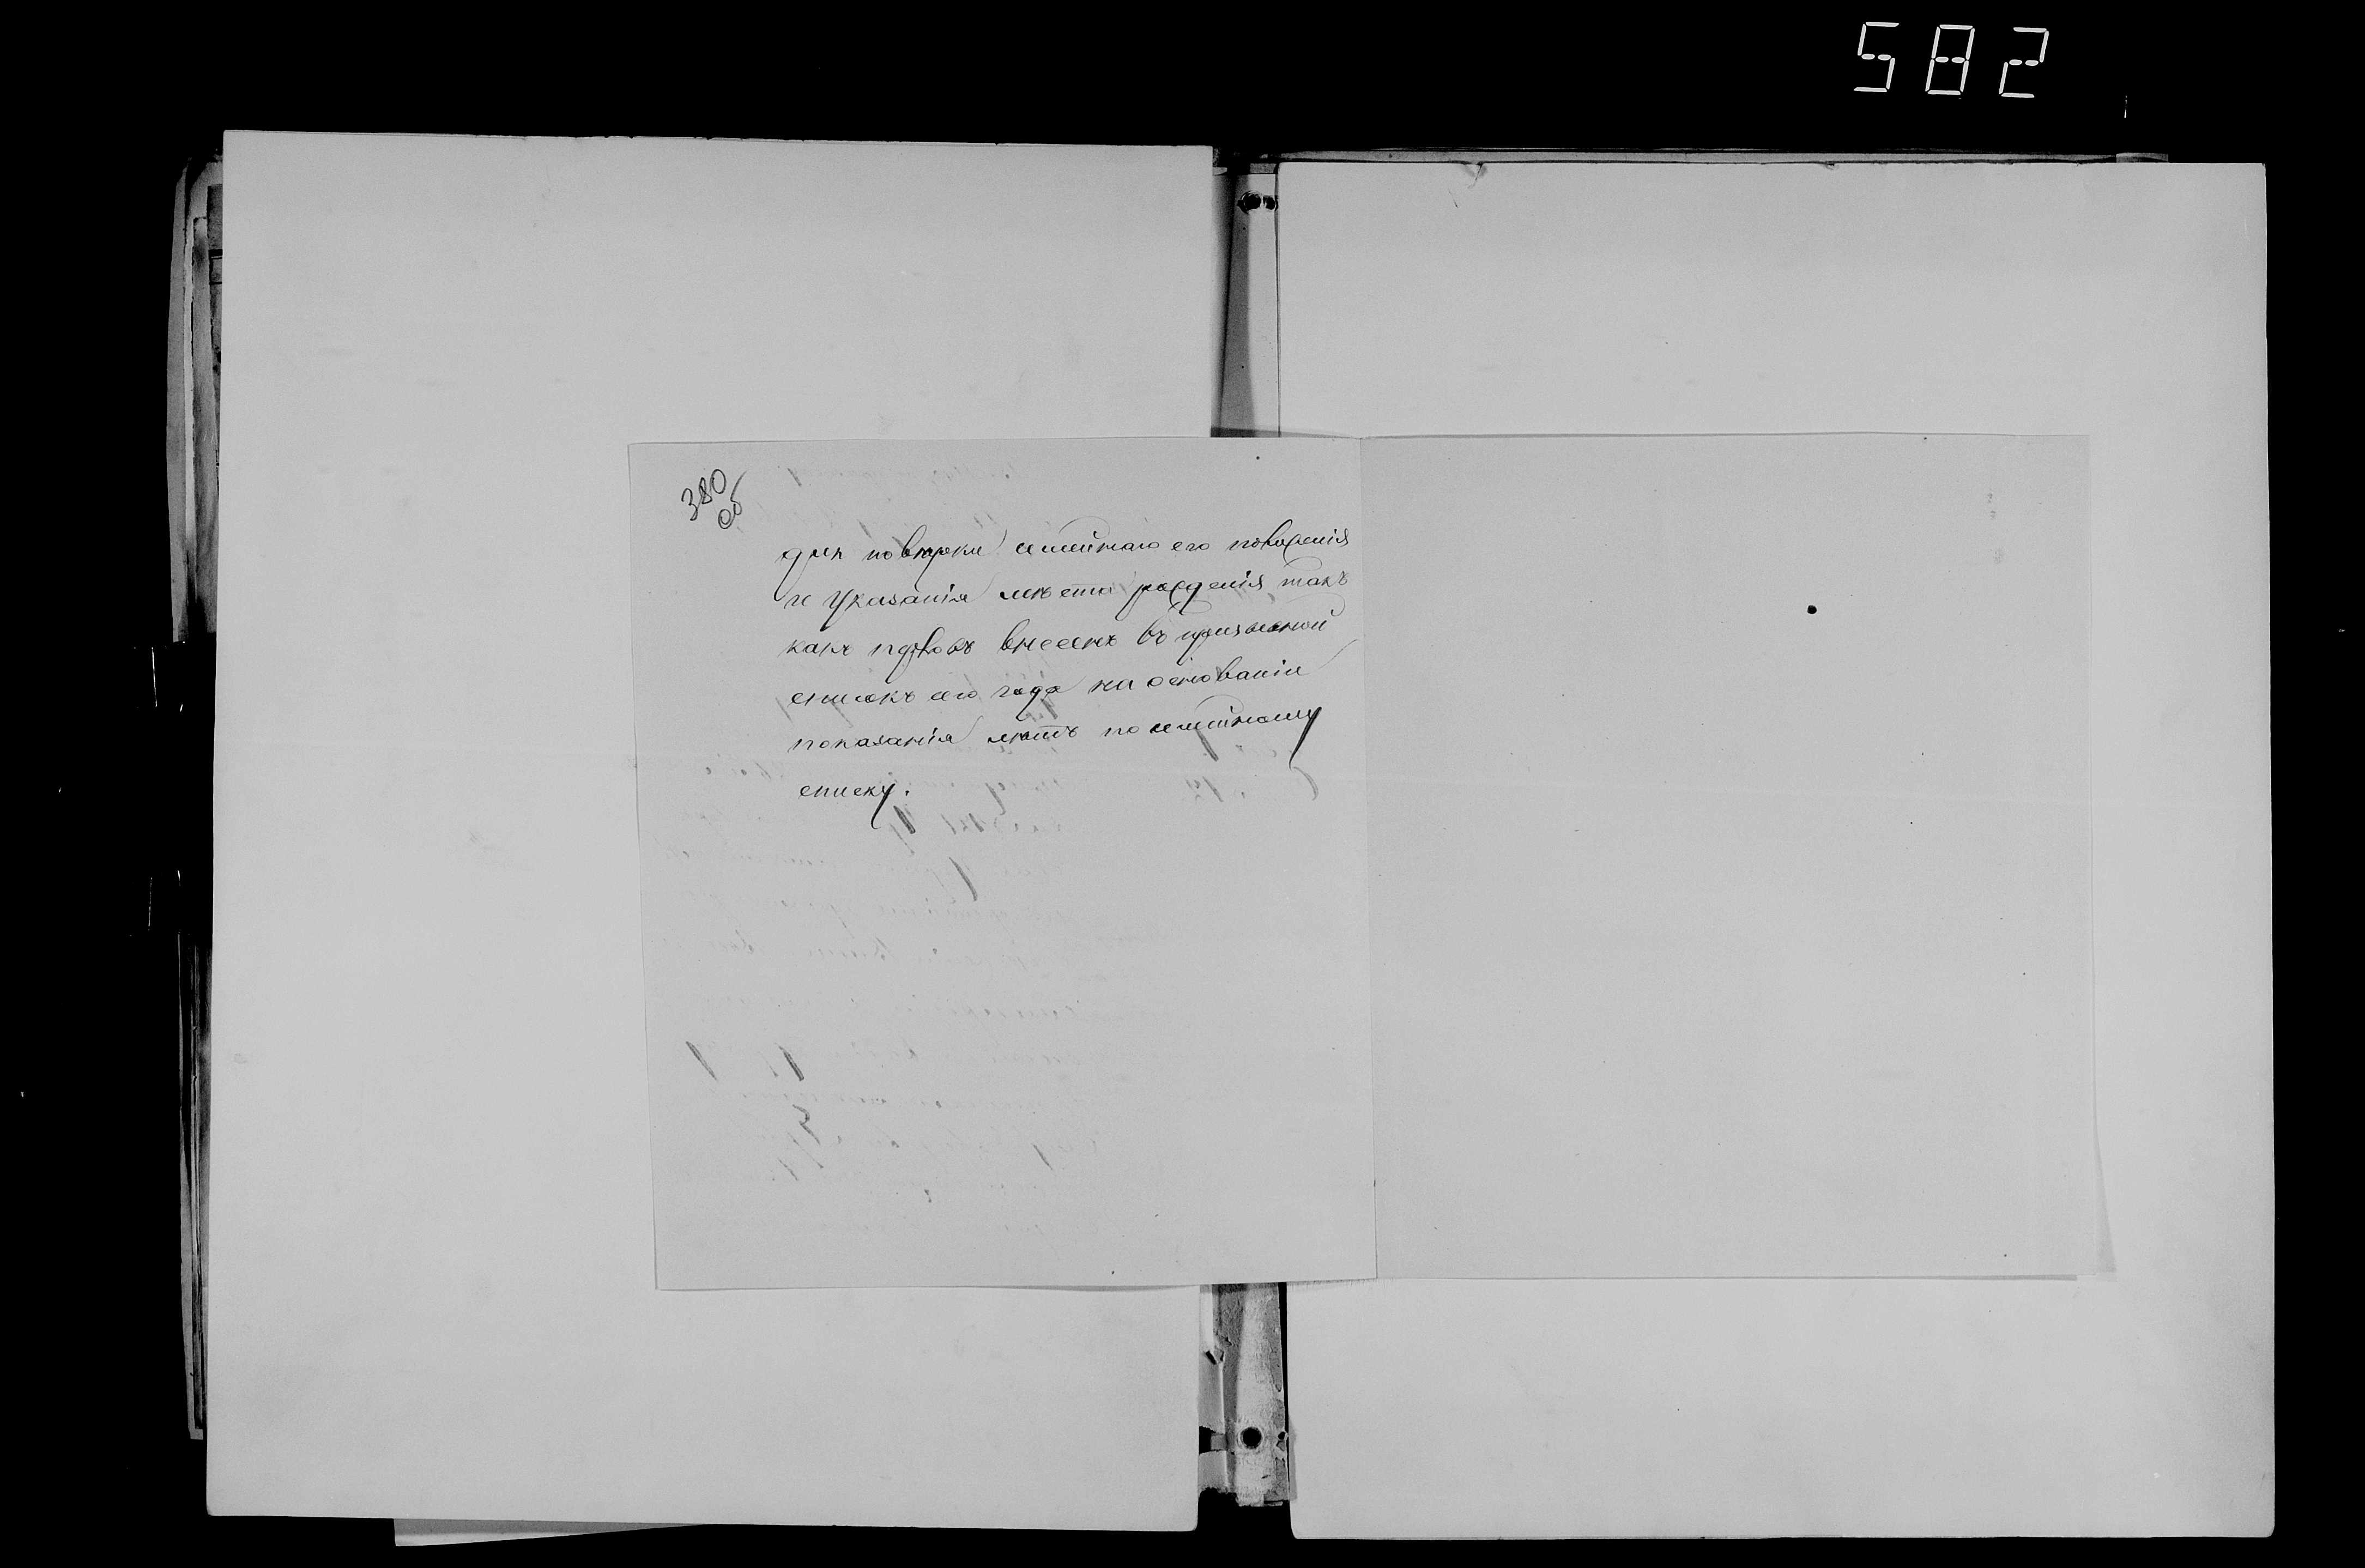 582
380
об
для повѣрки семейнаго его положенія
и указанія мѣста рожденія такъ
какъ внесенъ въ призывной
списокъ сего года на основаніи
показанія лѣтъ по семейному
списку.